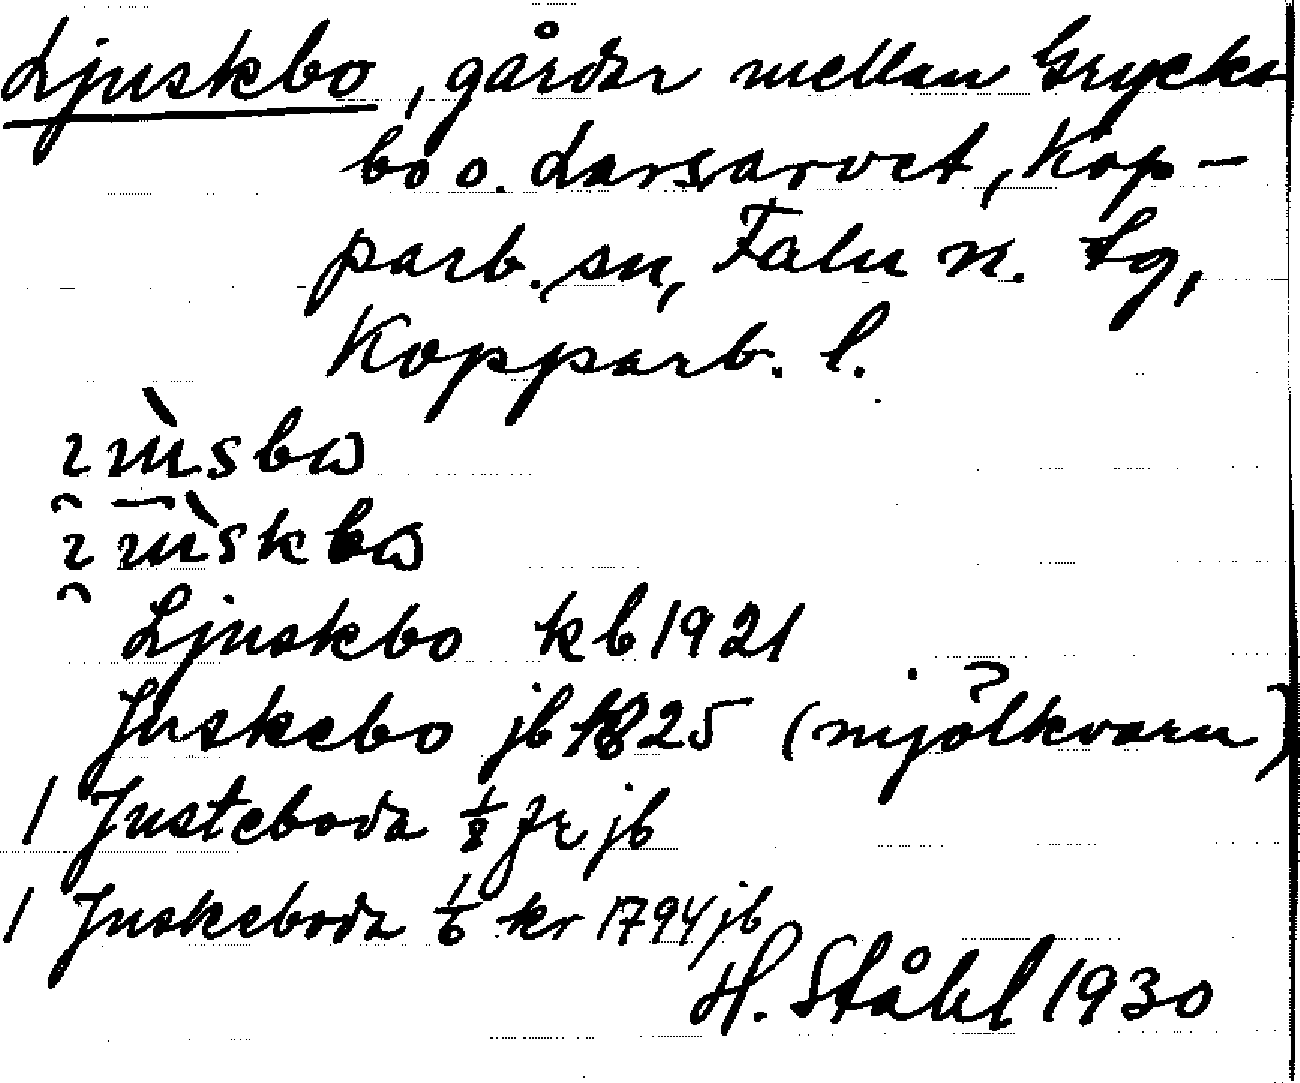 Ljuskbo, gårdar mellan Grycks
bo o. Larsarvet, Kop-
parb. sn, Falu n. tg,
Kopparb. l.
Ljuskbo kb 1921
Juskebo jb 1825 (mjölkvarn)
1 Justeboda 1/8 jb
1 Juskeboda 1/6 kr 1794 jb
H. Ståhl 1930